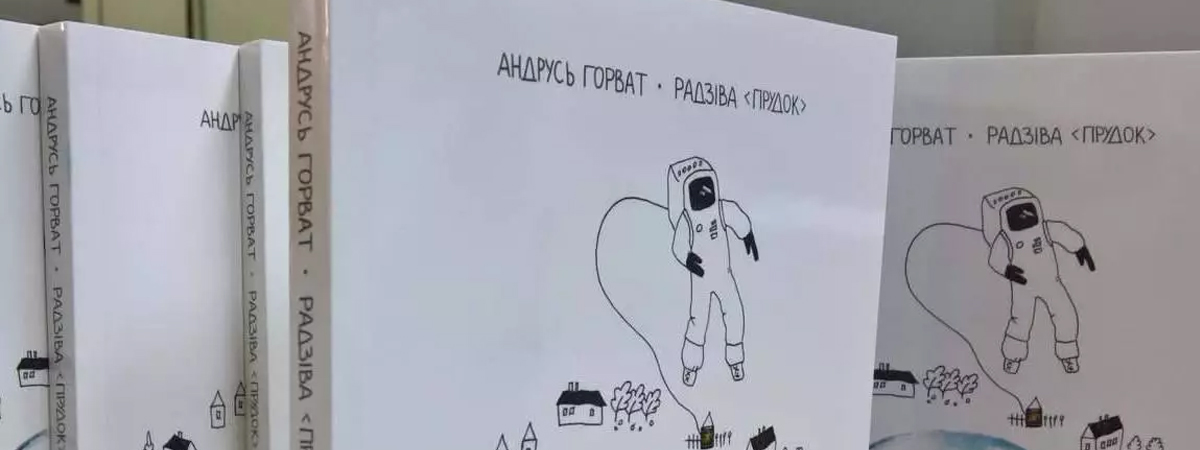 Ь ГО
АНДРУСЬ ГОРВАТ · РАДЗІВА <ПРУДОК>
АНДР
АНДРУСЬ ГОРВАТ · РАДЗІВА <ПРУДОК>
АНДРУСЬ ГОРВАТ · РАДЗІВА <ПР
АНДРУСЬ ГОРВАТ · РАДЗІВА <ПРУДОК>
ГОРВАТ · РАДЗІВА <ПРУДОК>